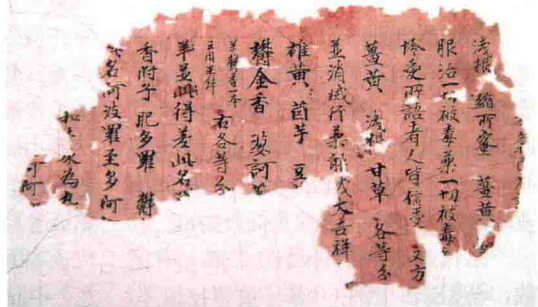 淺根 縮所蜜 薑黃
服治一切被毒藥一切被毒
怜愛所語者人皆信受 又方
薑黃 淺根 甘草 各等分
並消滅行來能成大吉祥
雄黃 茵芋 豆
欝金香 娑訶
右各等分
半並得差此名
香附子 肥多羅 欝
名阿波羅至多阿
和 水為丸
可阿